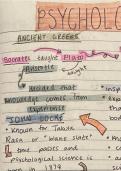 PSYCHOLO
ANCIENT GREEKS
Socrates taught Plato
Aristotle taught
decided that
knowledge comes from
experience
JOHN LOCKE
• Known for Tabula
Rasa or "blank slate"
• time passes and
psychological science is
born in 1879